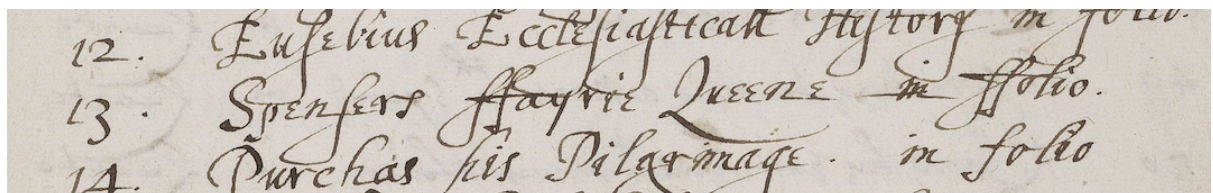 12. Eusebius Ecclesiasticall History in folio.
13. Spensers ffayrie Queene in ffolio.
14. Purchas his Pilgrimage. in folio